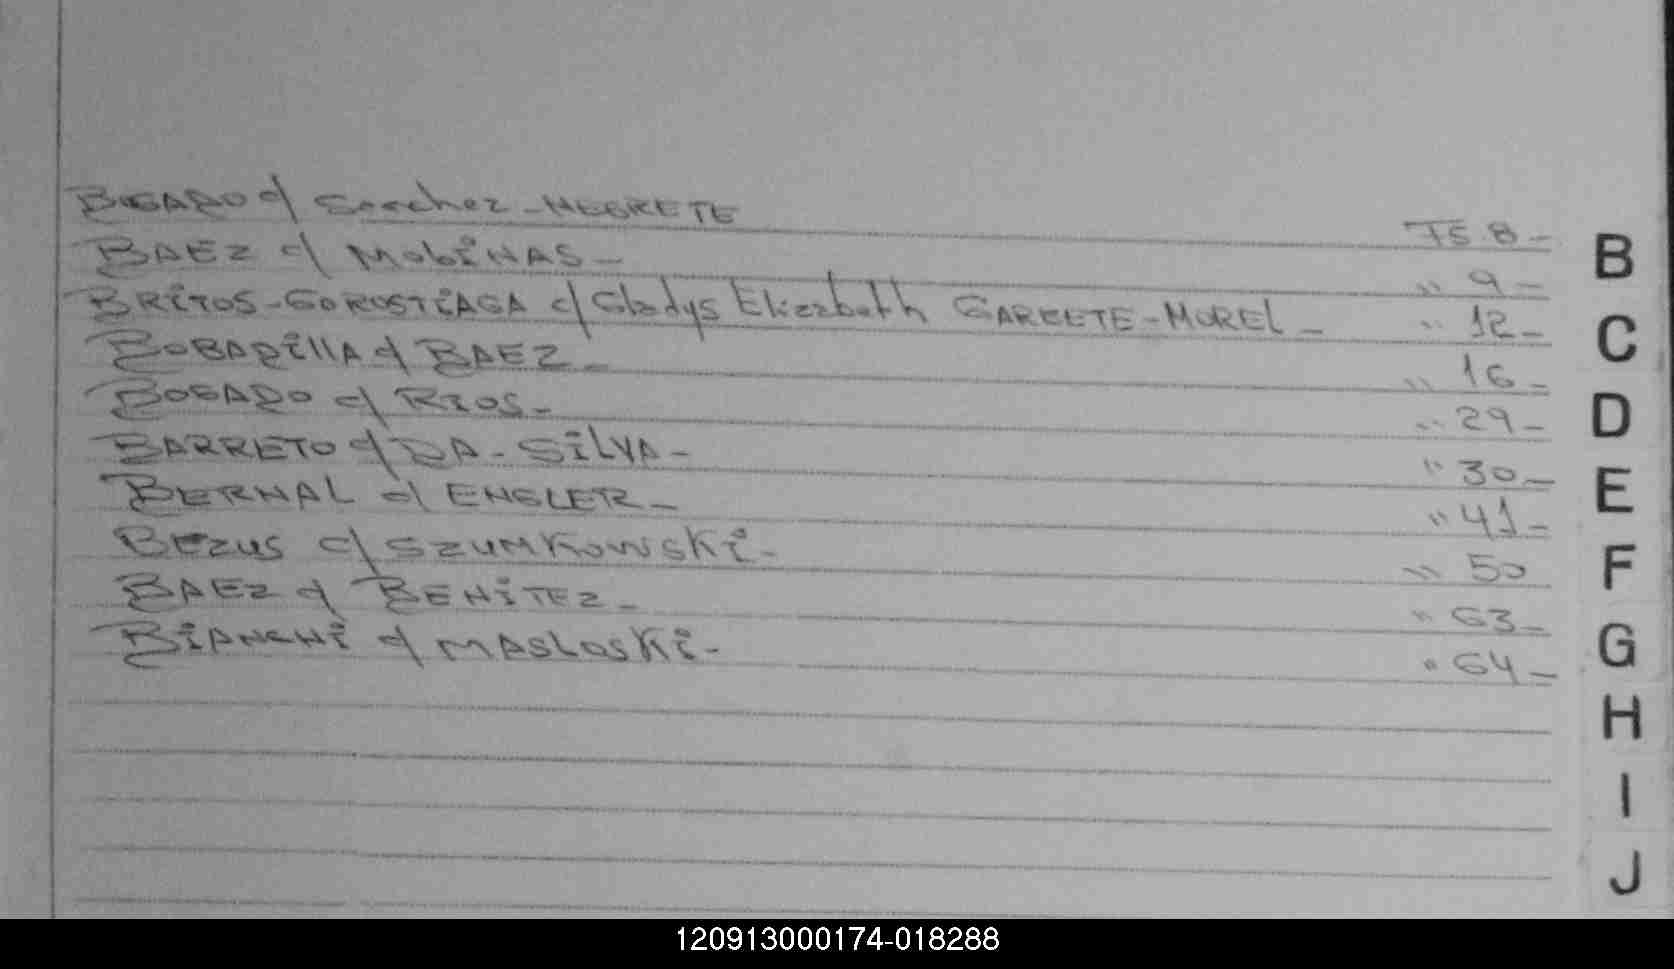 BOGADO c/ Sanchez-NEGRETE Fs 8-
BAEZ c/ MobiNAS- " 9-
BRiTOS-GOROSTiAGA c/ Gladys Elizabeth GARCETE-MOREL- " 12-
BOBADillA c/ BAEZ- " 16-
BOGADO c/ RIOS- " 29-
BARRETO c/ DA-SilVA- " 30-
BERNAL c/ ENGLER- " 41-
BEzus c/ SzuMKowsKi- " 50
BAEz c/ BENiTEz- " 63-
BiANCHi c/ MASLosKi- " 64-
B
C
D
E
F
G
H
I
J
120913000174-018288